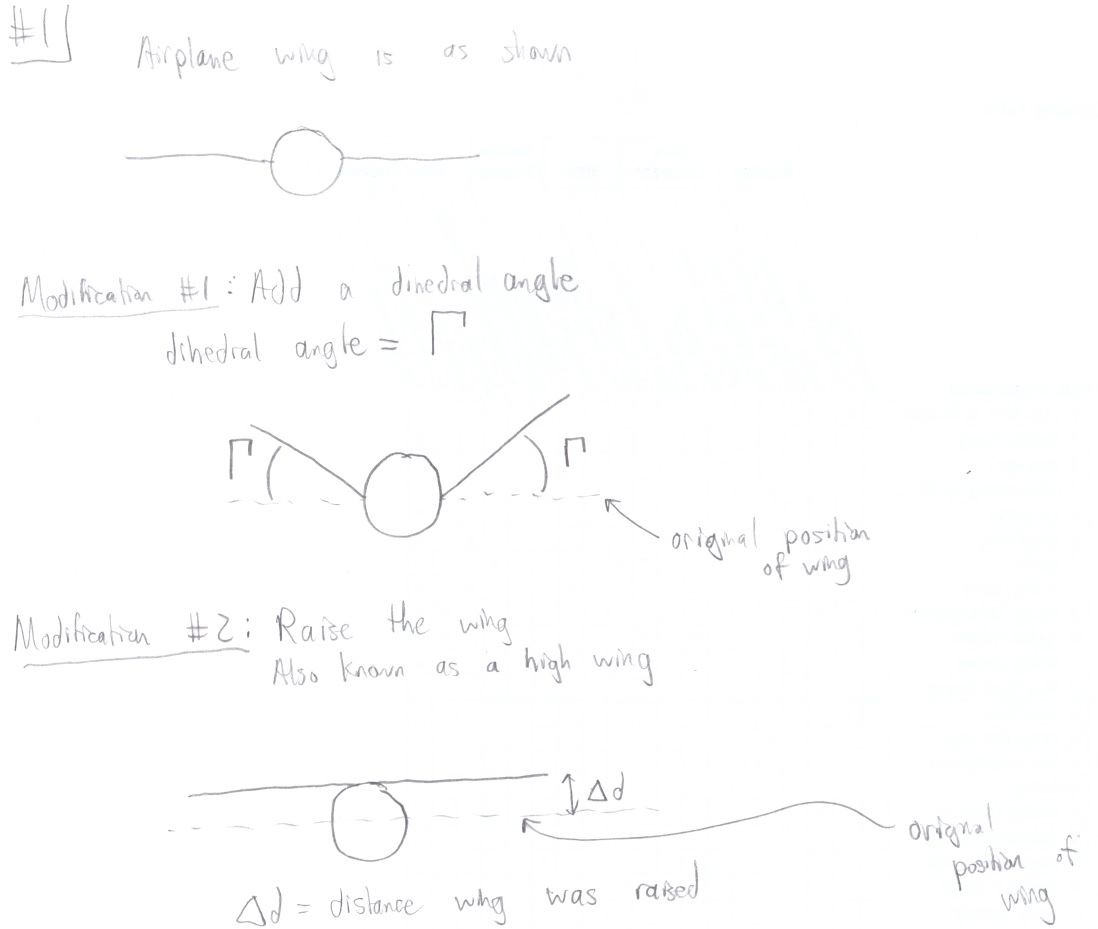 #1
Airplane wing is as shown
Modification #1: Add a dihedral angle
dihedral angle = Γ
Γ
Γ
original position
of wing
Modification #2: Raise the wing
Also known as a high wing
Δd
orignal
position of
wing
Δd = distance wing was raised